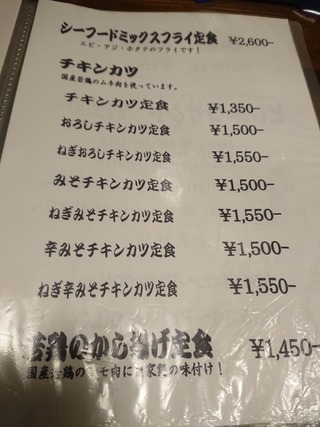 シーフードミックスフライ定食 ¥2,600-
エビ・アジ・ホタテのフライです!
チキンカツ
国産若鶏のムネ肉を使っています。
チキンカツ定食 ¥1,350-
おろしチキンカツ定食 ¥1,500-
ねぎおろしチキンカツ定食 ¥1,550-
みそチキンカツ定食 ¥1,500-
ねぎみそチキンカツ定食 ¥1,550-
辛みそチキンカツ定食 ¥1,500-
ねぎ辛みそチキンカツ定食 ¥1,550-
若鶏のから揚げ定食 ¥1,450-
国産若鶏のモモ肉に自家製の味付け!